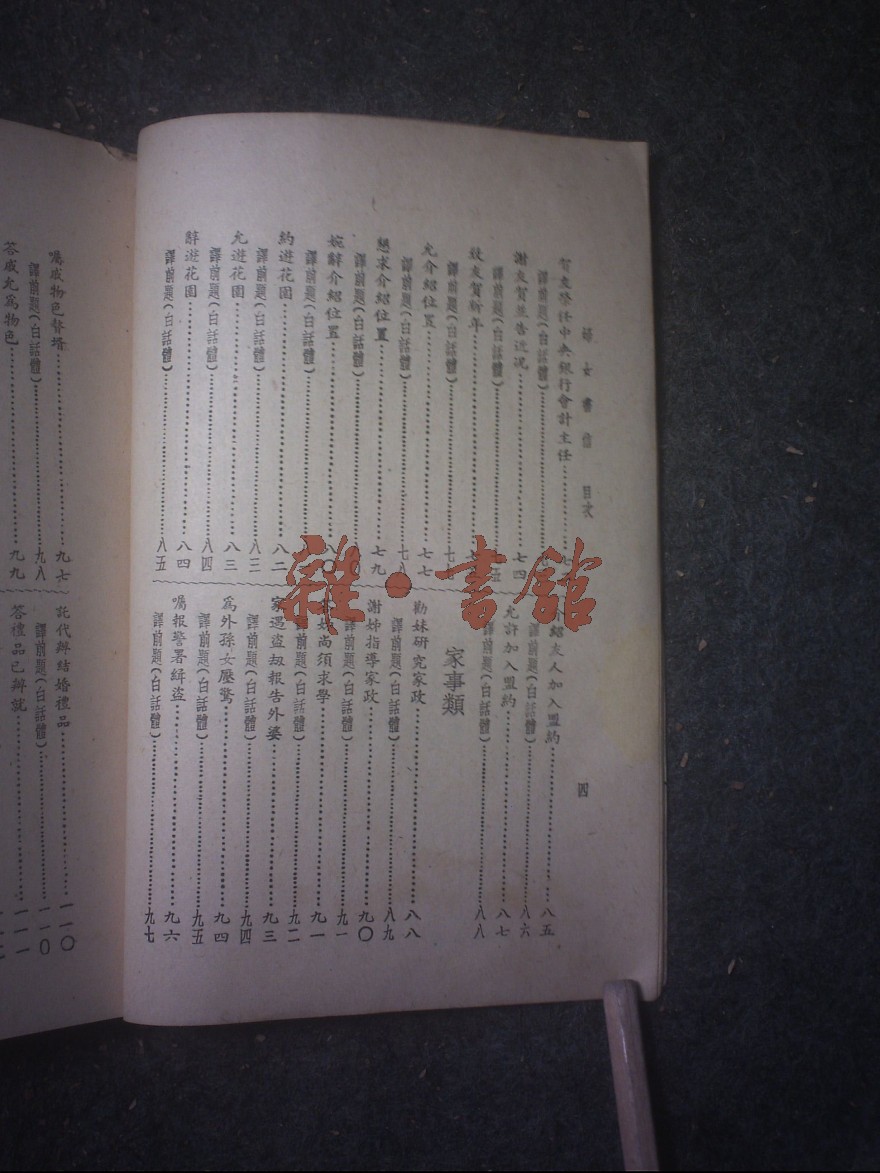 婦女書信 目次
四
賀友榮任中央銀行會計主任
譯前題(白話體)
謝友賀並告近况 七四
譯前題(白話體)
效友賀新年
譯前題(白話體)
允介紹位置 七七
譯前題(白話體) 七八
懇求介紹位置 七九
譯前題(白話體)
婉辭介紹位置
譯前題(白話體)
約遊花園 八二
譯前題(白話體) 八三
允遊花園 八三
譯前題(白話體) 八四
辭遊花園 八四
譯前題(白話體) 八五
介紹友人加入盟約 八五
譯前題(白話體) 八六
允許加入盟約 八七
譯前題(白話體) 八八
家事類
勸妹研究家政 八八
譯前題(白話體) 八九
謝姊指導家政 九〇
譯前題(白話體) 九一
尚須求學 九一
譯前題(白話體) 九二
家遇盜刼報告外婆 九三
譯前題(白話體) 九四
爲外孫女壓驚 九四
譯前題(白話體) 九五
囑報警署緝盜 九六
譯前題(白話體) 九七
囑戚物色贅壻 九七
譯前題(白話體) 九八
答戚允爲物色 九九
託代辦結婚禮品 一一〇
譯前題(白話體) 一一〇
答禮品已辦就 一一一
雜·書館